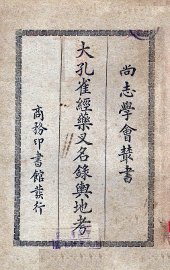 尚志學會叢書
大孔雀經藥叉名錄輿地考
商務印書館發行